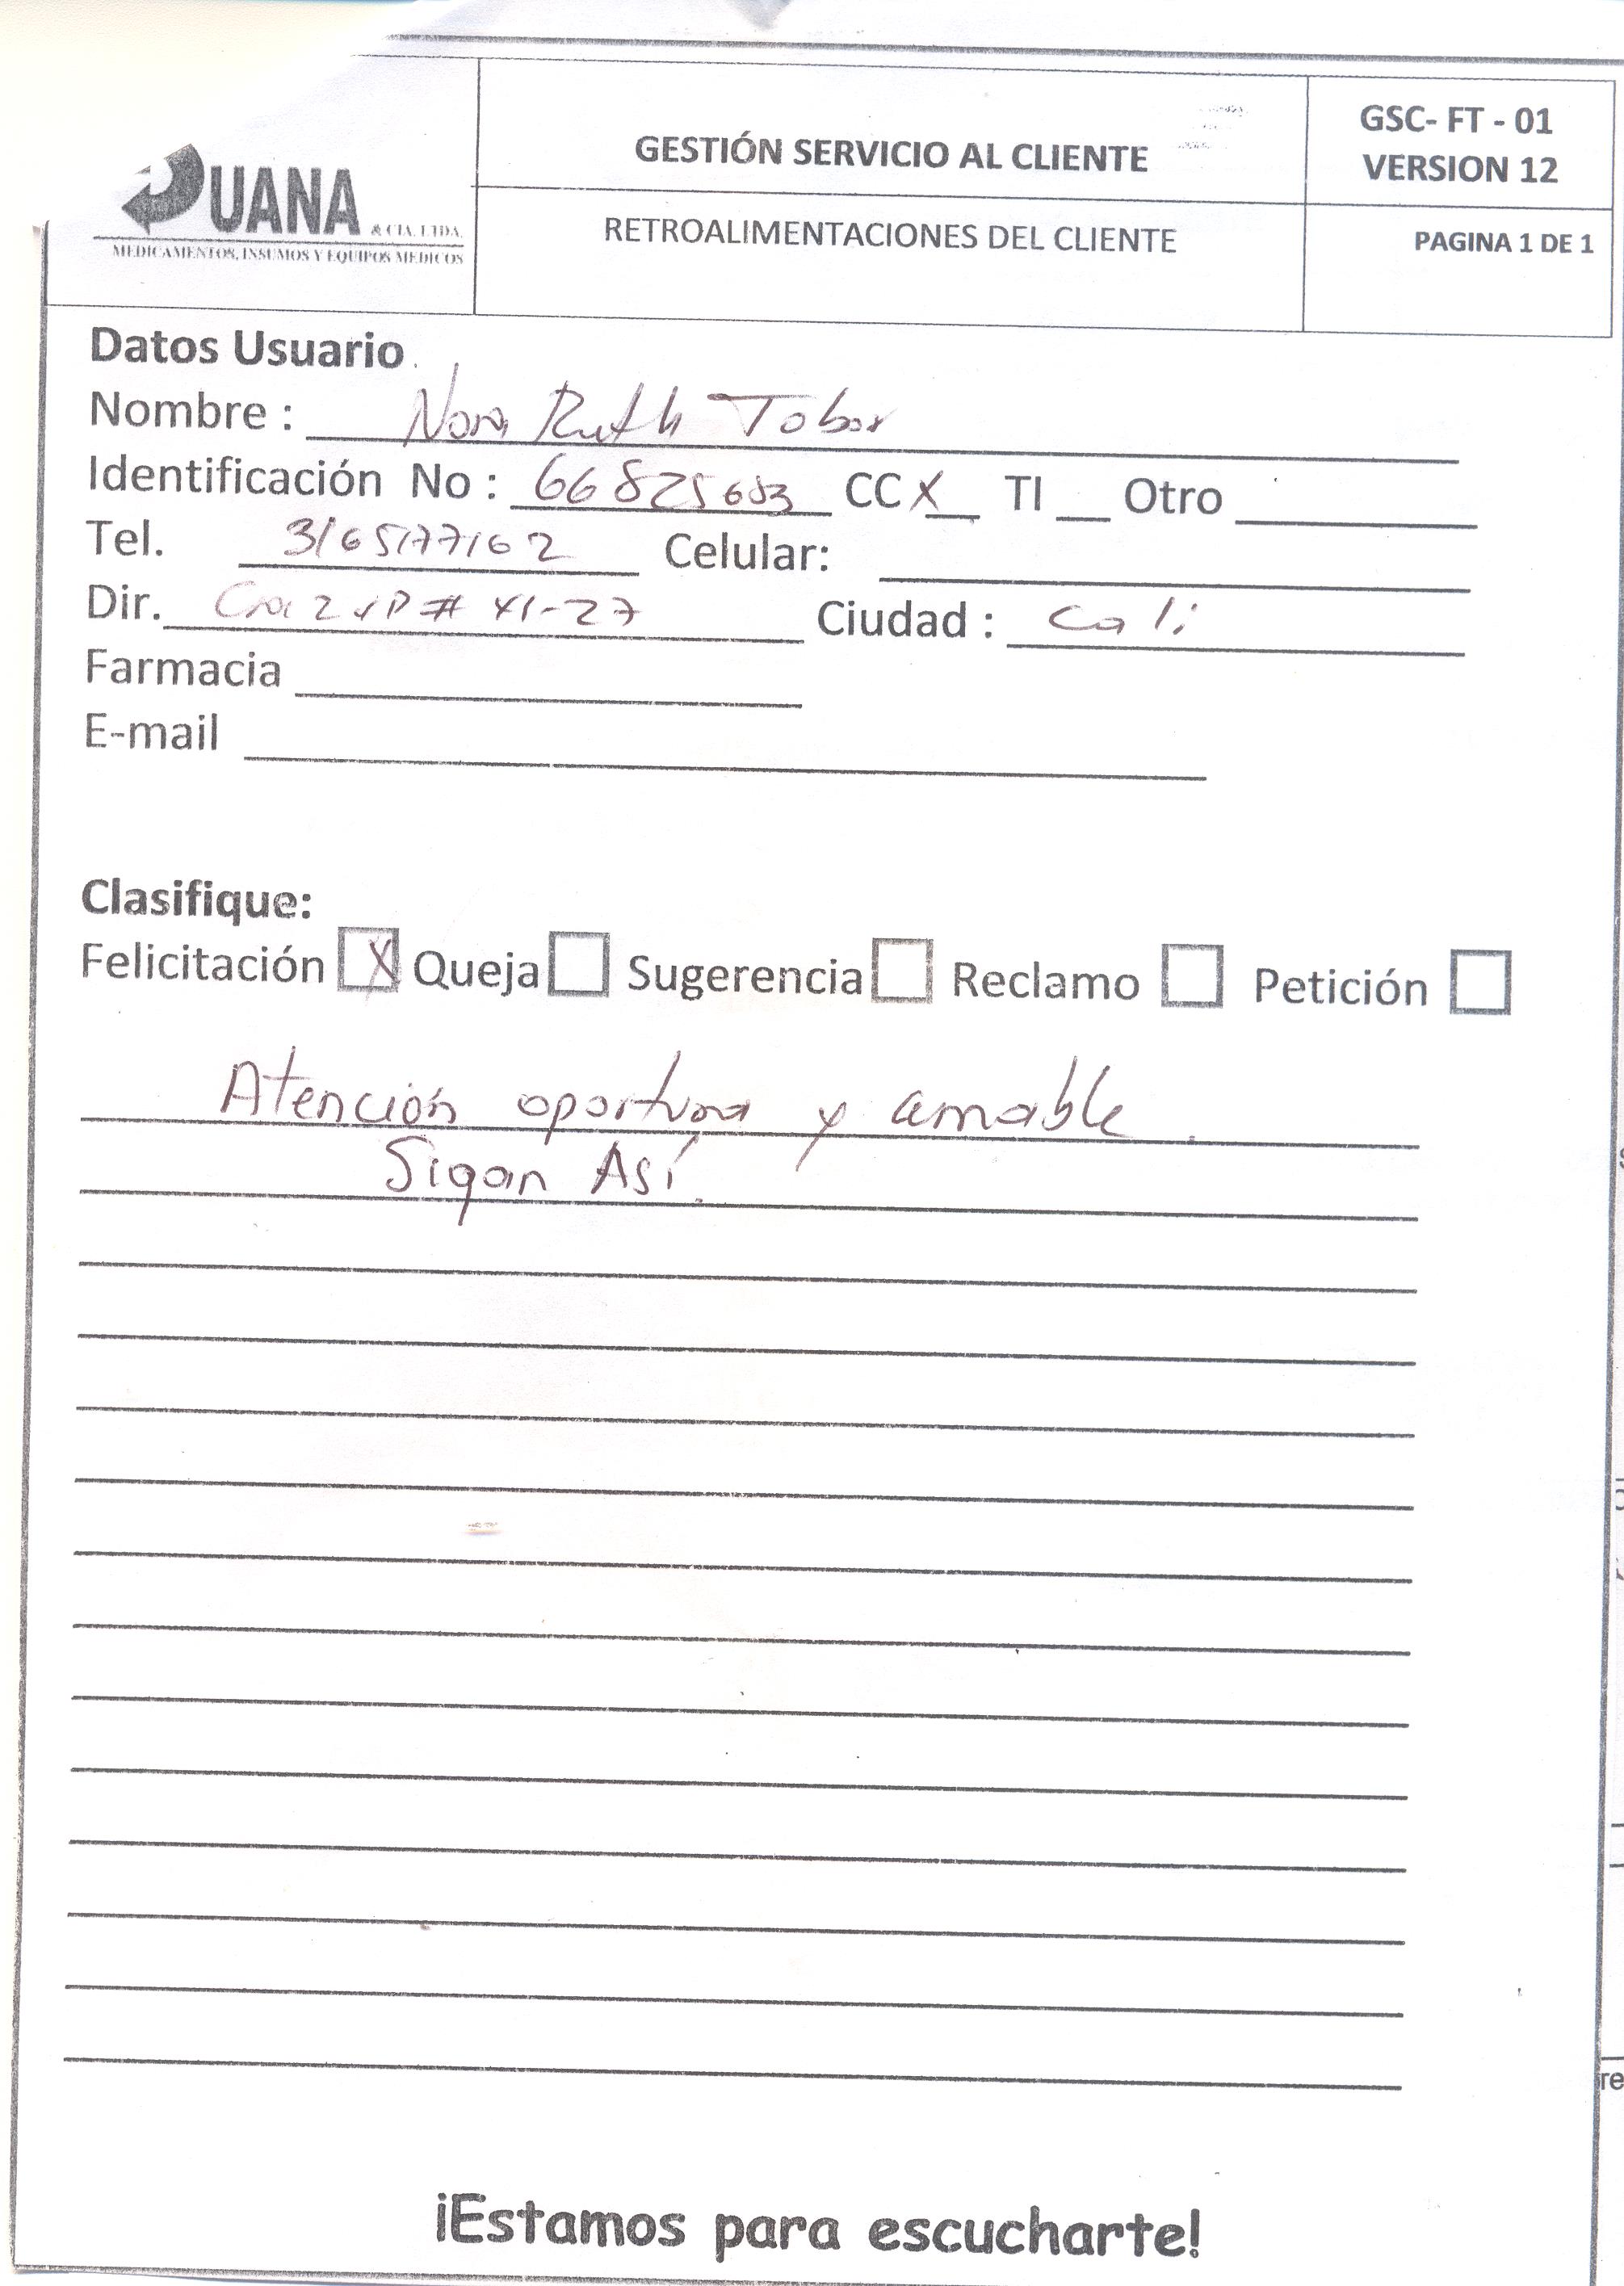 DUANA & CIA. LTDA.
MEDICAMENTOS, INSUMOS Y EQUIPOS MEDICOS
GESTIÓN SERVICIO AL CLIENTE
RETROALIMENTACIONES DEL CLIENTE
GSC- FT - 01
VERSION 12
PAGINA 1 DE 1
Datos Usuario
Nombre : Nora Ruth Tobar
Identificación No : 66825683 CC X TI __ Otro
Tel. 3165177162 Celular:
Dir. # 41-27 Ciudad : Cali
Farmacia
E-mail
Clasifique:
Felicitación X Queja Sugerencia Reclamo Petición
Atención oportuna y amable.
Sigan Así.
¡Estamos para escucharte!